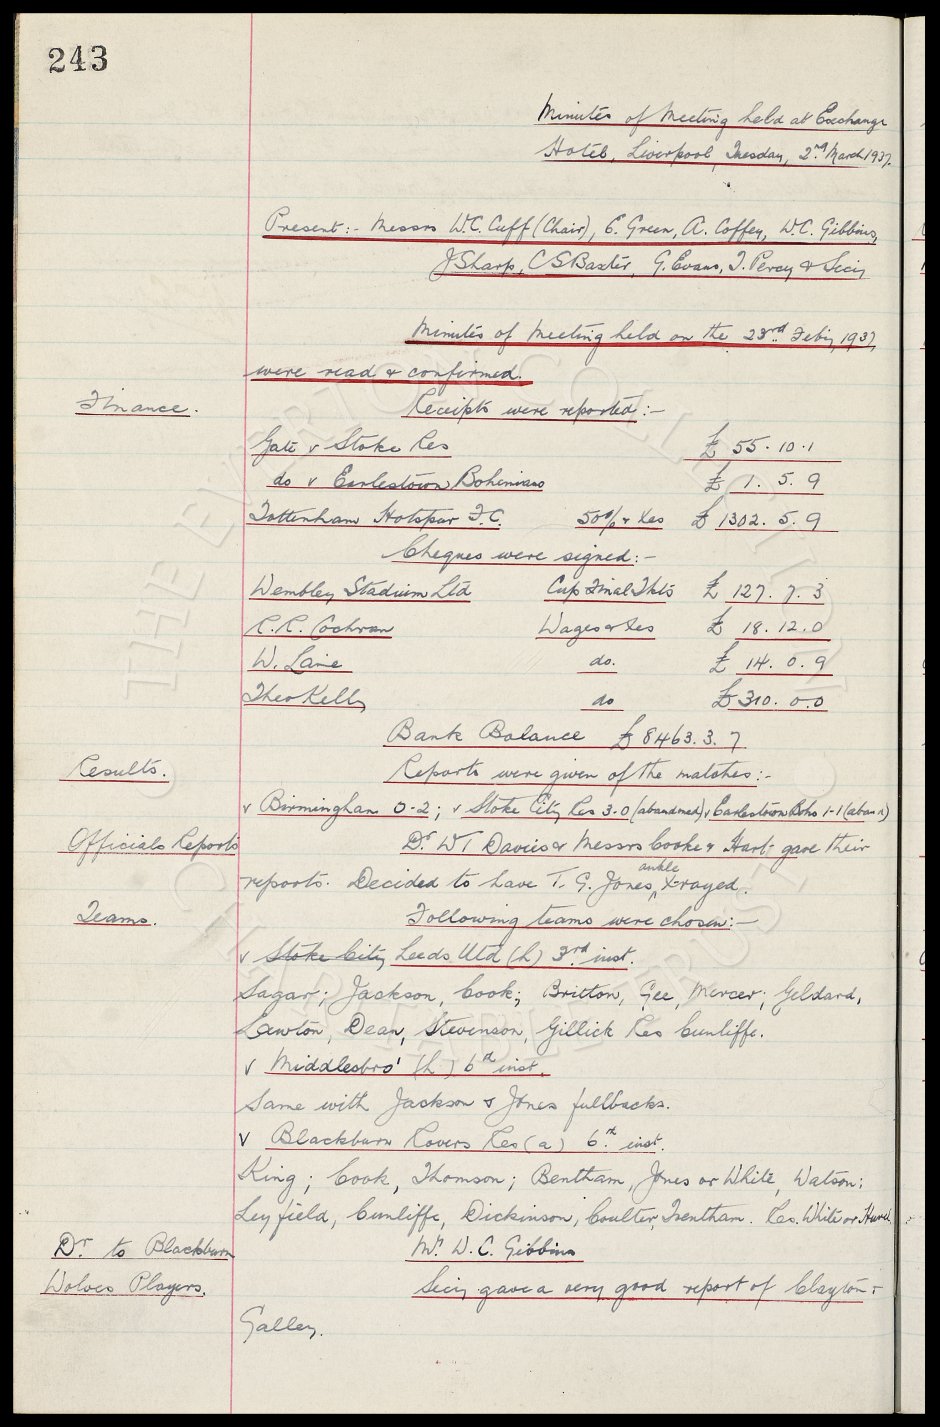 243
Minutes of Meeting held at Exchange
Hotel, Liverpool, Tuesday, 2nd March 1937.
Present:- Messrs W.C. Cuff (Chair), E. Green, A. Coffey, W.C. Gibbins,
J Sharp, C S Baxter, G. Evans, T. Percy & Secy
Minutes of Meeting held on the 23rd Feby, 1937,
were read & confirmed.
Finance. Receipts were reported:-
Gate v Stoke Res £ 55. 10. 1
do v Earlestown Bohemians £ 1. 5. 9
Tottenham Hotspur F.C. 50% & Xes £ 1302. 5. 9
Cheques were signed:-
Wembley Stadium Ltd Cup Final Tkts £ 127. 7. 3
R.R. Cochran Wages & Xes £ 18. 12. 0
W. Laine do. £ 14. 0. 9
Theo Kelly do £ 310. 0. 0
Bank Balance £ 8463. 3. 7
Results. Reports were given of the matches:-
v Birmingham 0-2; v Stoke City Res 3-0 (abandoned) v Earlestown Bohs 1-1 (aband)
Officials Reports Dr. W T Davies & Messrs Cooke & Hart gave their
reports. Decided to have T. G. Jones, ankle X-rayed.
Teams. Following teams were chosen:-
v Stoke City Leeds Utd (h) 3rd inst.
Sagar; Jackson, Cook; Britton, Gee, Mercer; Geldard,
Lawton, Dean, Stevenson, Gillick Res Cunliffe.
v Middlesbro' (h) 6th inst.
Same with Jackson & Jones fullbacks.
v Blackburn Rovers Res (a) 6th inst.
King; Cook, Thomson; Bentham, Jones or White, Watson;
Leyfield, Cunliffe, Dickinson, Coulter, Trentham. Res. White or Hurel.
Dr. to Blackburn Mr. W. C. Gibbins
Wolves Players. Secy gave a very good report of Clayton &
Galley.
THE EVERTON COLLECTION
CHARITABLE TRUST